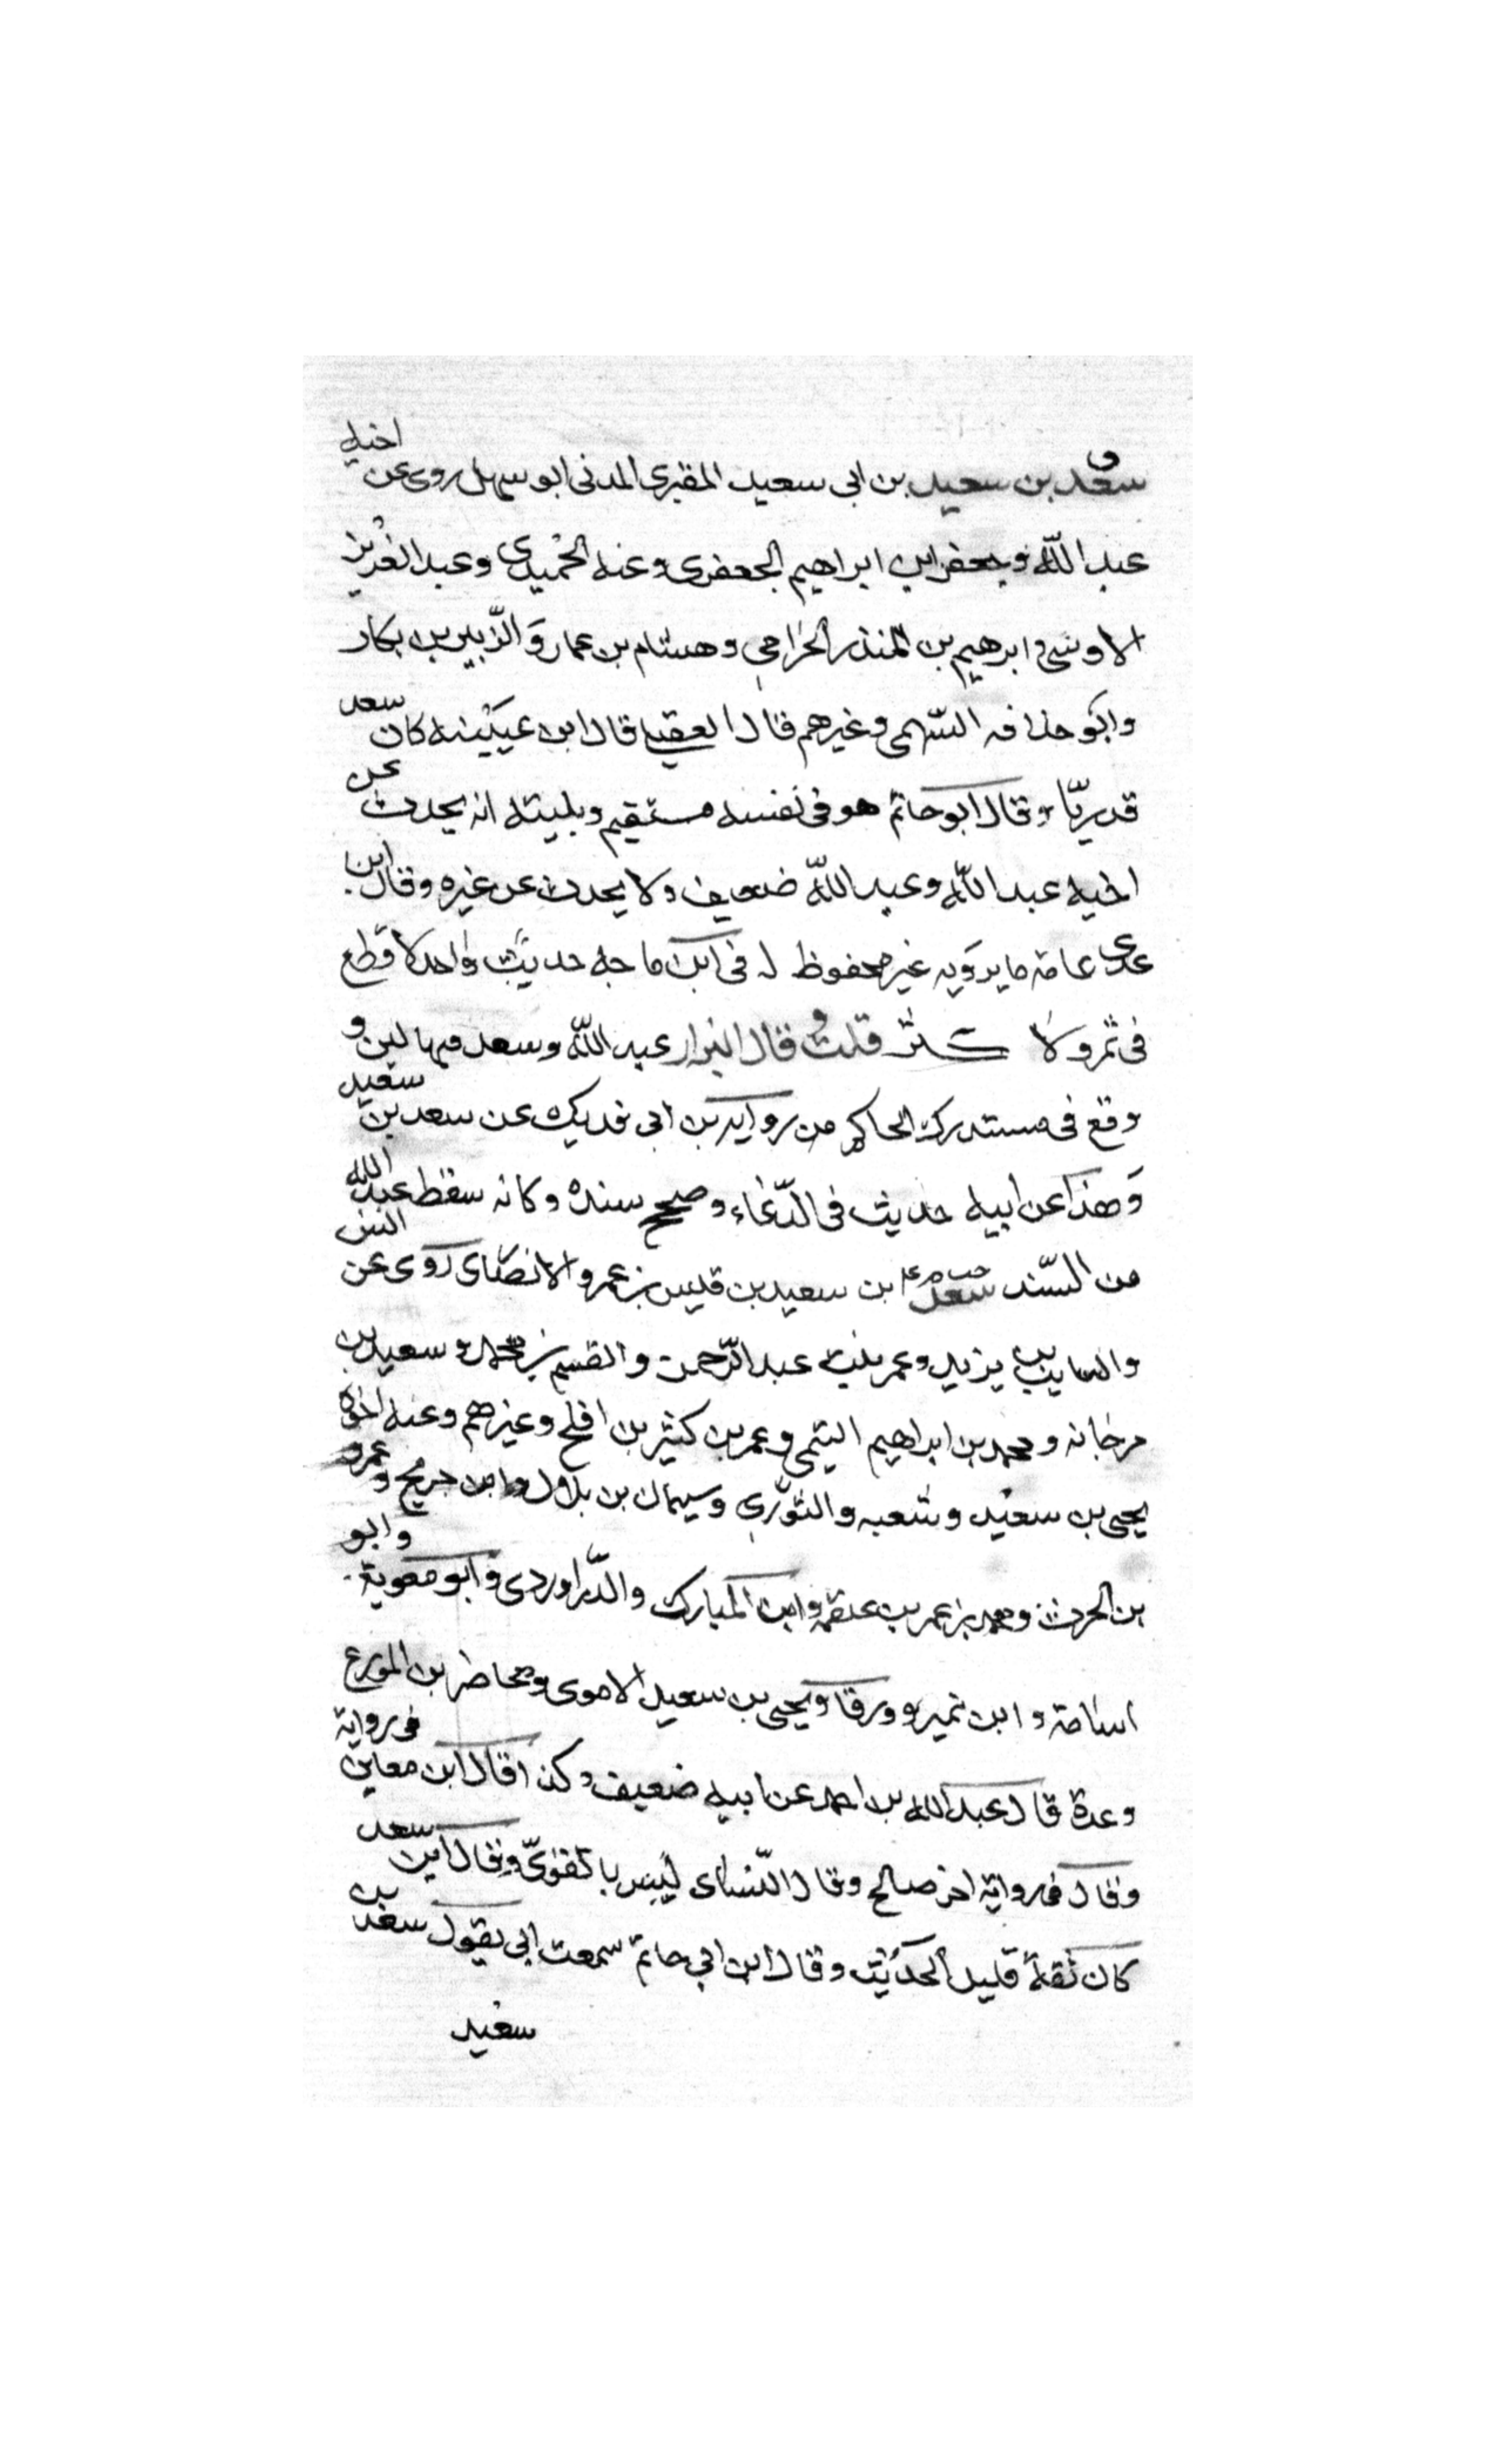 ق
سعد بن سعيد بن ابى سعيد المقبرى المدنى ابو سهل روى عن اخيه
عبد الله وجعفر ابن ابراهيم الجعفرى وعنه الحميدى وعبد العزيز
الاوسى وابرهيم بن المنذر الحزامي وهشام بن عمار والزبير بن بكار
وابو حذافه السهمى وغيرهم قال العقيلى قال ابن عيينه كان سعد
قدريّا وقال ابو حاتم هو فى نفسه مستقيم وبليته انه يحدث عن
اخيه عبد الله وعبد الله ضعيف ولا يحدث عن غيره وقال ابن
عدى عامة ما يرويه غير محفوظ له فى ابن ماجه حديث واحد لا قطع
فى ثمر ولا كثر قلت وقال البزار عبد الله وسعد فيهما لين و
وقع فى مستدرك الحاكم من روايه بن ابى فديك عن سعد بن سعيد
وهذا عن ابيه حديث فى الدّعاء وصحح سنده وكانه سقط عبد الله
من السّند سعد ابن سعيد بن قيس بن عمرو الانصاى روى عن انس
والسايب بن يزيد وعمر بنت عبد الرّحمن والقسم بن محمد وسعيد بن
مرجانه ومحمد بن ابراهيم التيمى وعمر بن كثير بن افلح وغيرهم وعنه اخوه
يحيى بن سعيد وشعبه والثورى وسيمان بن بلال وابن جريج وعمرو
بن الحرث ومحمد بن عمر بن علقمه وابن المبارك والدّراوردى وابو معوية وابو
اسامة وابن نمير وورقا ويحيى بن سعيد الاموى ومحاضر بن المورع
وعدة قال عبد الله بن احمد عن ابيه ضعيف وكذا قال ابن معين فى رواية
وقال فى رواية اخر صالح وقال النّساى ليس بالقوىّ وقال ابن سعد
كان ثقة قليل الحديث وقال ابن ابي حاتم سمعت ابي يقول سعد بن
سعيد